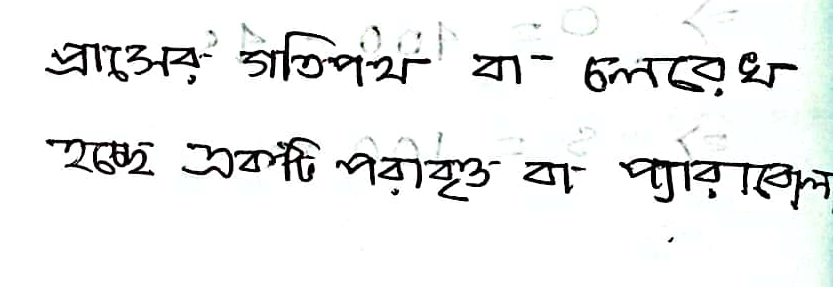 প্রাসের গতিপথ বা চলরেখ
হচ্ছে একটি পরাবৃত্ত বা প্যারাবোল